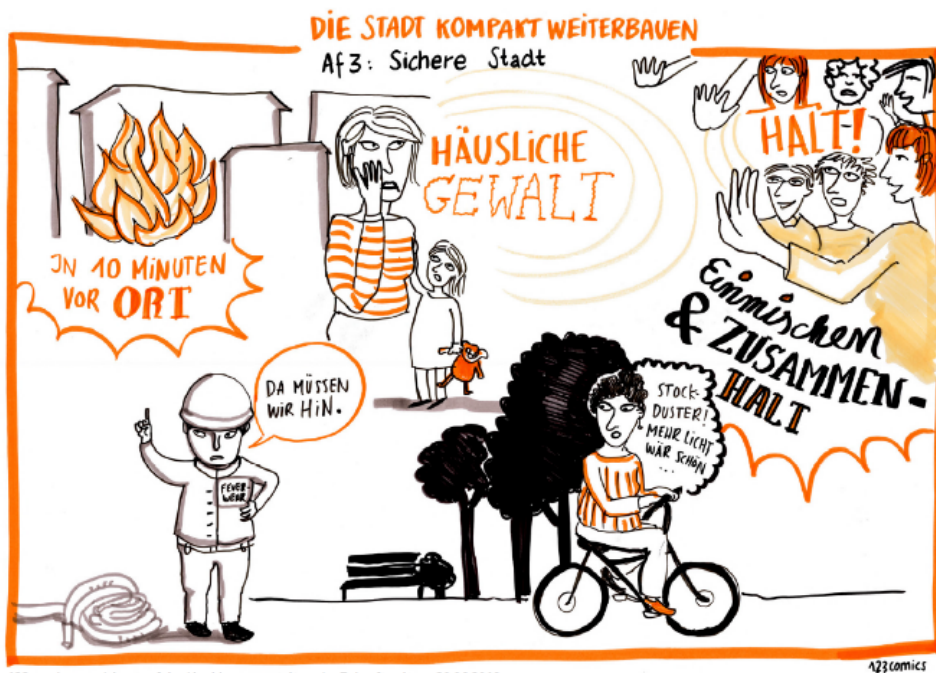 DIE STADT KOMPAKT WEITERBAUEN
Af3: Sichere Stadt
IN 10 MINUTEN
VOR ORT
HÄUSLICHE
GEWALT
HALT!
Einmischen
& ZUSAMMEN-
HALT
DA MÜSSEN
WIR HIN.
FEUER-
WEHR
STOCK-
DUSTER!
MEHR LICHT
WÄR SCHÖN
...
123comics